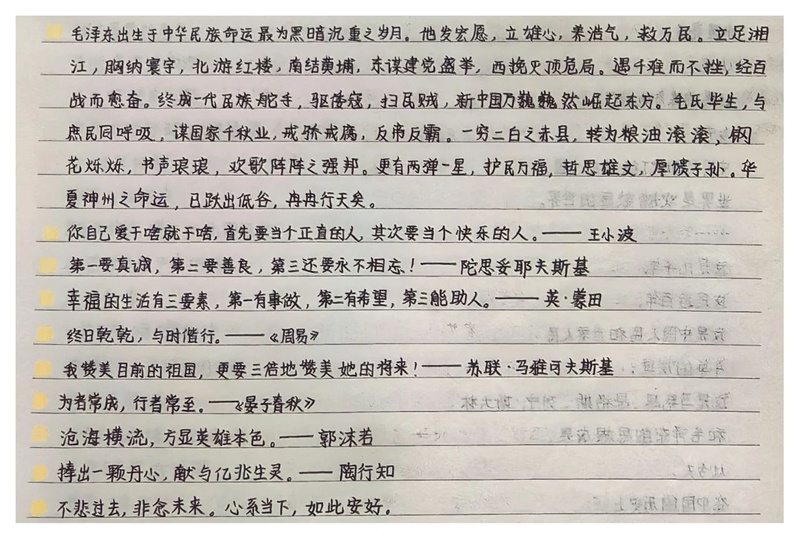 毛泽东出生于中华民族命运最为黑暗沉重之岁月。他发宏愿，立雄心，养浩气，救万民。立足湘
江，胸纳寰宇，北游红楼，南结黄埔，东谋建党盛举，西挽灭顶危局。遇千难而不挫，经百
战而愈奋。终成一代民族舵手，驱倭寇，扫民贼，新中国乃巍巍然崛起东方。毛氏毕生，与
庶民同呼吸，谋国家千秋业，戒骄戒腐，反帝反霸。一穷二白之赤县，转为粮油滚滚、钢
花烁烁，书声琅琅，欢歌阵阵之强邦。更有两弹一星，护民万福，哲思雄文，厚馈子孙。华
夏神州之命运，已跃出低谷，冉冉行天矣。
你自己爱干啥就干啥，首先要当个正直的人，其次要当个快乐的人。——王小波
第一要真诚，第二要善良，第三还要永不相忘！——陀思妥耶夫斯基
幸福的生活有三要素，第一有事故，第二有希望，第三能助人。——英·蒙田
终日乾乾，与时偕行。——《周易》
我赞美目前的祖国，更要三倍地赞美她的将来！——苏联·马雅可夫斯基
为者常成，行者常至。——《晏子春秋》
沧海横流，方显英雄本色。——郭沫若
捧出一颗丹心，献与亿兆生灵。——陶行知
不悲过去，非念未来。心系当下，如此安好。